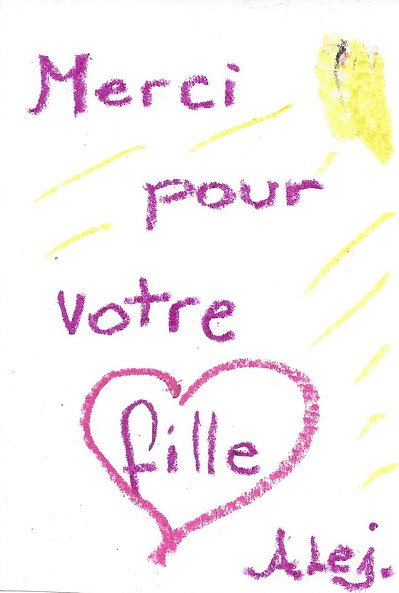 Merci
pour
votre
fille
Alej.